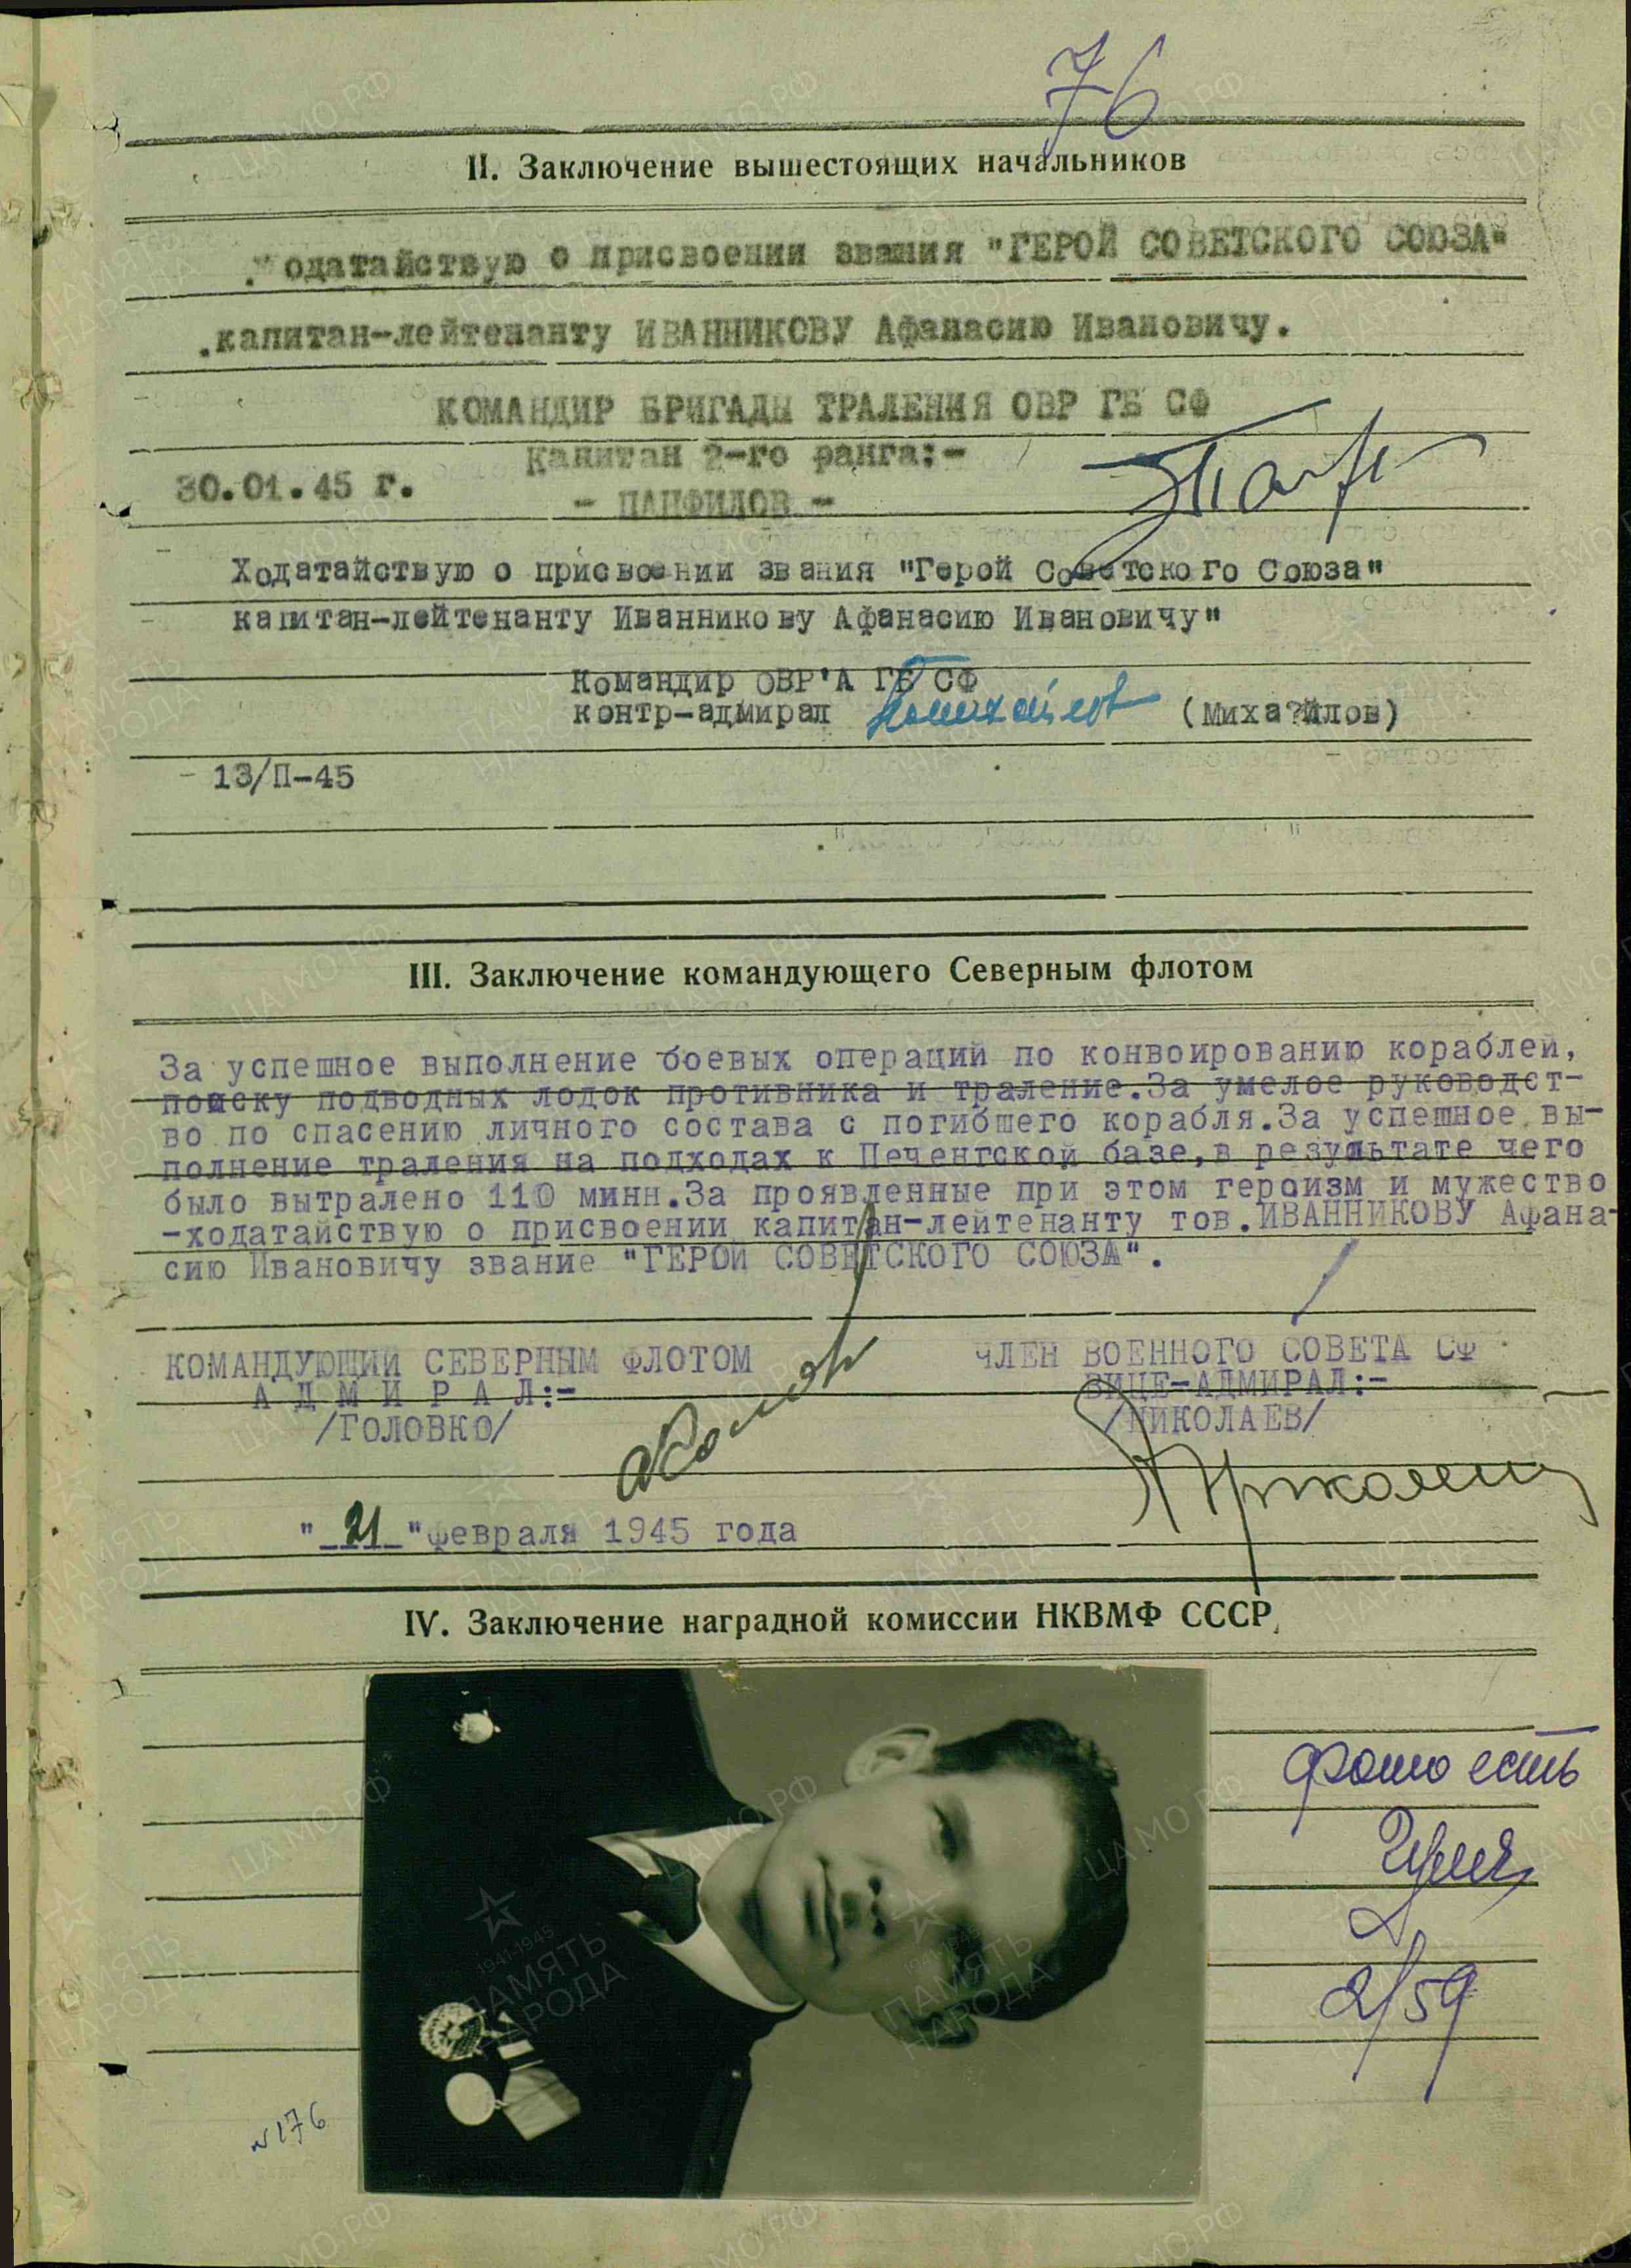 76
II. Заключение вышестоящих начальников
Ходатайствую о присвоении звания "ГЕРОЙ СОВЕТСКОГО СОЮЗА"
капитан-лейтенанту ИВАННИКОВУ Афанасию Ивановичу.
КОМАНДИР БРИГАДЫ ТРАЛЕНИЯ ОВР ГБ СФ
Капитан 2-го ранга:-
30.01.45 г.
- ПАНФИЛОВ -
Ходатайствую о присвоении звания "Герой Советского Союза"
капитан-лейтенанту Иванникову Афанасию Ивановичу"
Командир ОВР'А ГБ СФ
контр-адмирал (Михайлов)
13/П-45
III. Заключение командующего Северным флотом
За успешное выполнение боевых операций по конвоированию кораблей,
поиску подводных лодок противника и траление.За умелое руководст-
во по спасению личного состава с погибшего корабля.За успешное вы-
полнение траления на подходах к Печенгской базе,в результате чего
было вытралено 110 минн.За проявленные при этом героизм и мужество
-ходатайствую о присвоении капитан-лейтенанту тов.ИВАННИКОВУ Афана-
сию Ивановичу звание "ГЕРОЙ СОВЕТСКОГО СОЮЗА".
КОМАНДУЮЩИЙ СЕВЕРНЫМ ФЛОТОМ ЧЛЕН ВОЕННОГО СОВЕТА СФ
А Д М И Р А Л:- ВИЦЕ-АДМИРАЛ:-
/ГОЛОВКО/ /НИКОЛАЕВ/
"21" февраля 1945 года
IV. Заключение наградной комиссии НКВМФ СССР
фото есть
2/59
N 176
ЦАМО.РФ
1941-1945
ПАМЯТЬ
НАРОДА